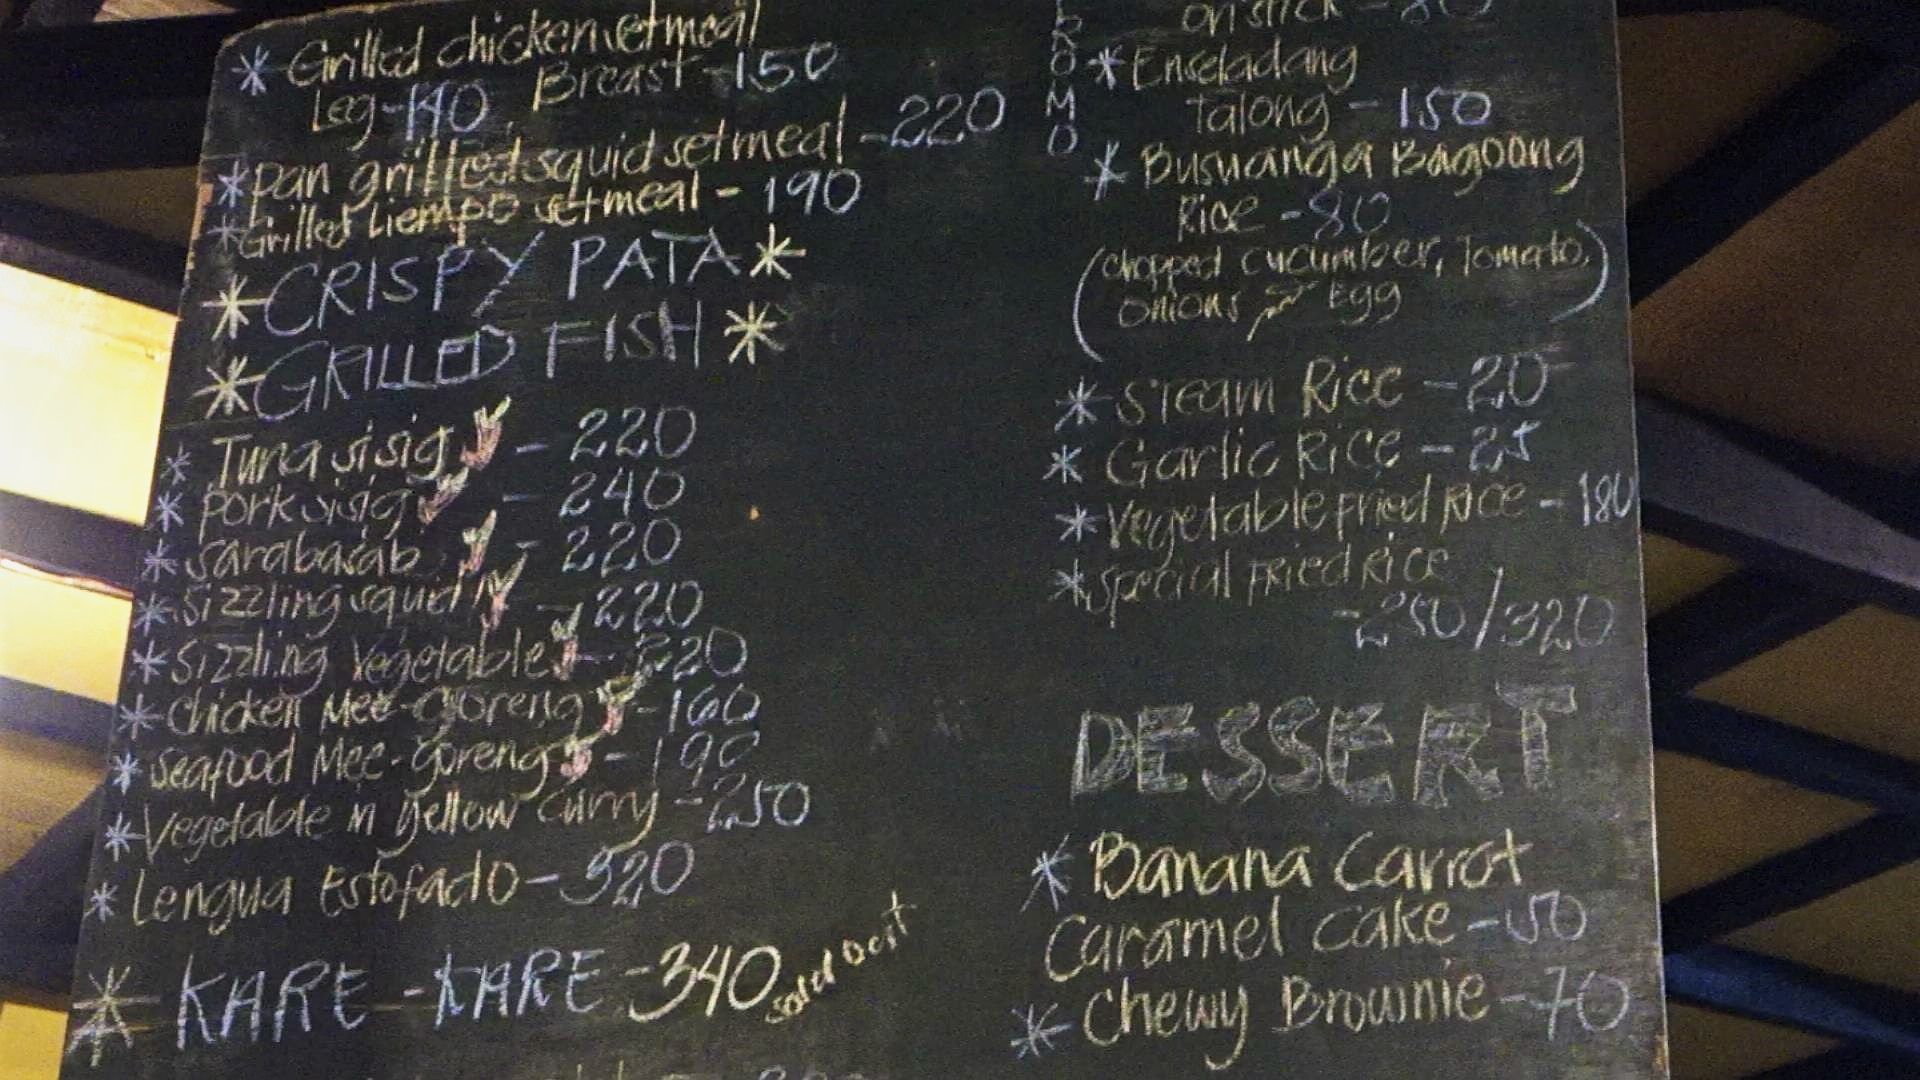 * Grilled chicken setmeal
Leg-140, Breast-150
* pan grilled squid setmeal - 220
* Grilled Liempo setmeal - 190
* CRISPY PATA *
* GRILLED FISH *
* Tuna sisig - 220
* pork sisig - 240
* sarabasab - 220
* sizzling squid - 220
* sizzling vegetable - 220
* chicken Mee-Goreng - 160
* seafood Mee-Goreng - 190
* Vegetable in yellow curry - 250
* Lengua Estofado - 320
* KARE-KARE - 340 sold out
ROMO
on stick - 80
* Enseladang
Talong - 150
* Busuanga Bagoong
Rice - 80
(chopped cucumber, Tomato,
onions & Egg)
* STeam Rice - 20
* Garlic Rice - 25
* Vegetable fried Rice - 180
* special FRied Rice
- 250/320
DESSERT
* Banana Carrot
Caramel cake - 50
* Chewy Brownie - 70